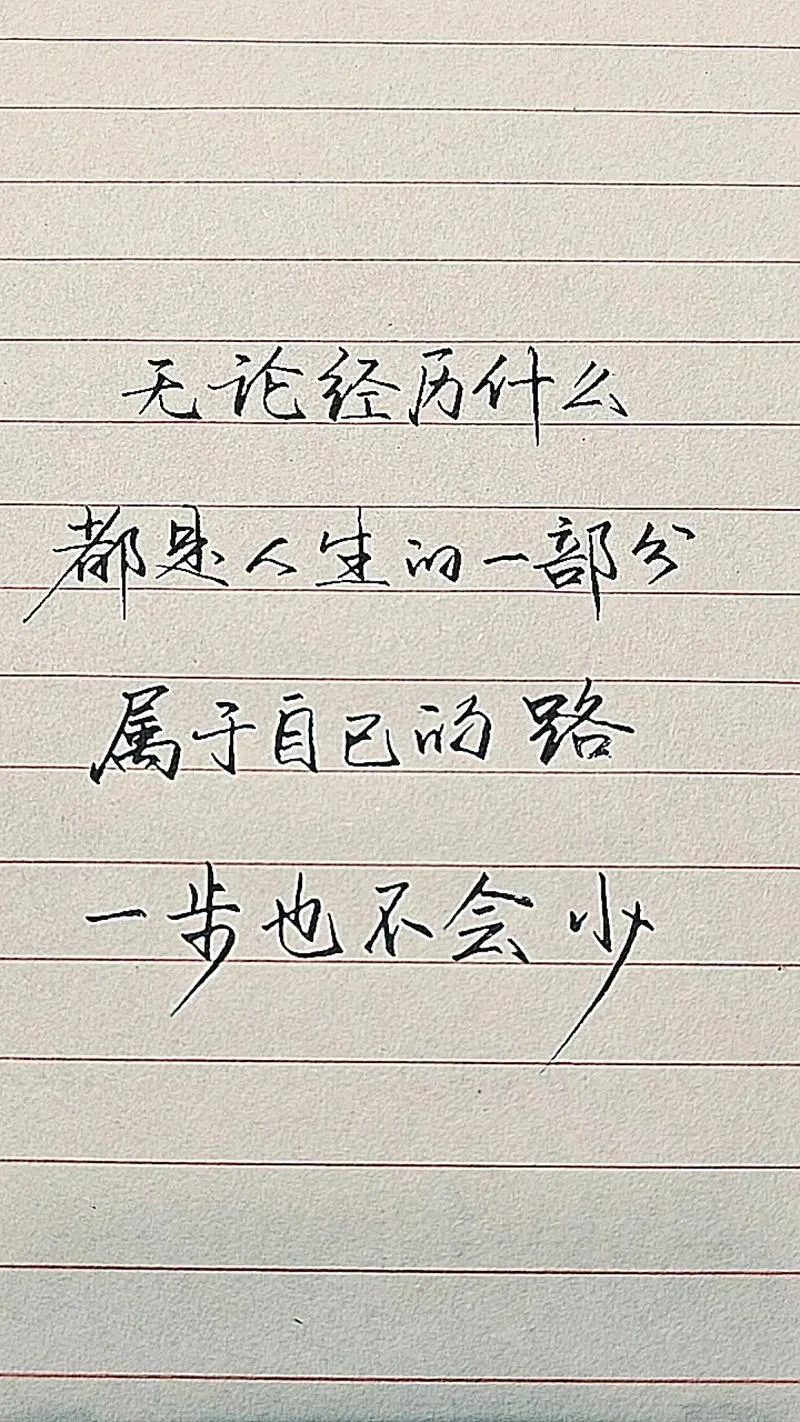 无论经历什么
都是人生的一部分
属于自己的路
一步也不会少